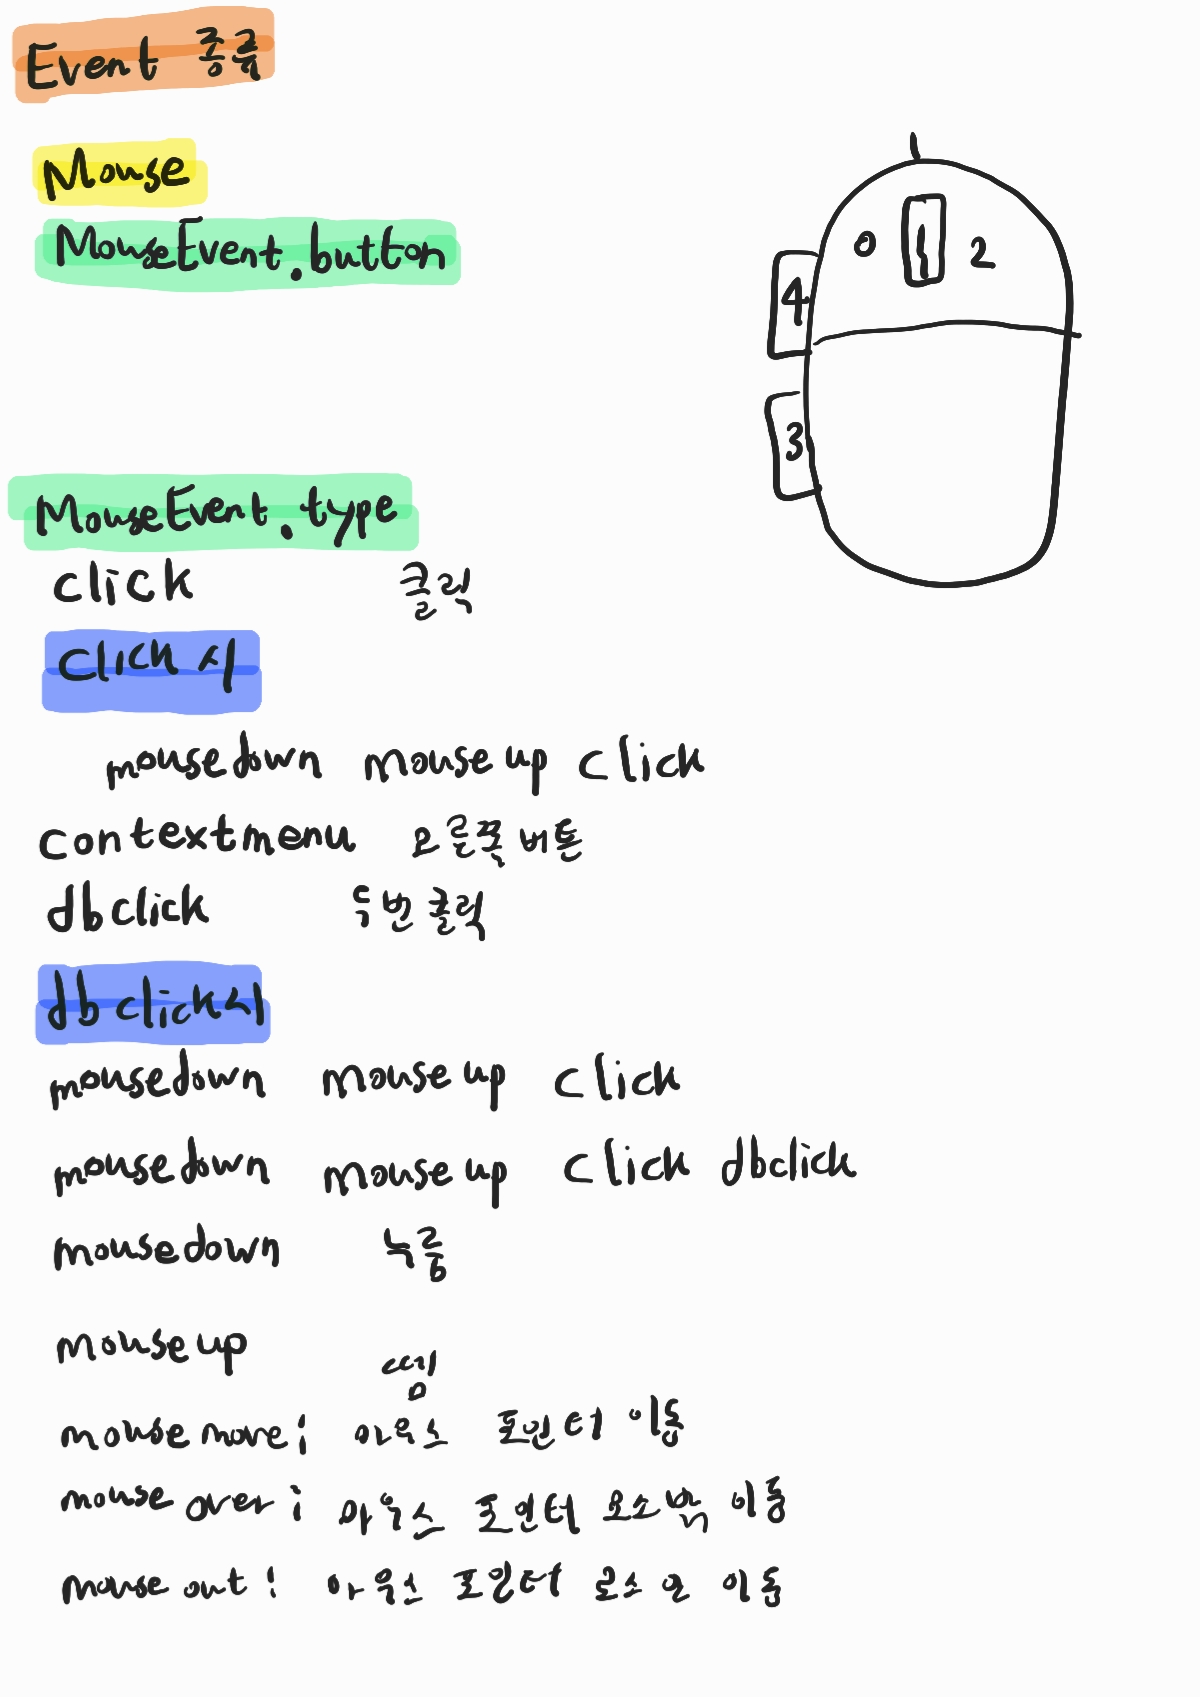 Event 종류
Mouse
MouseEvent.button
0 1 2
4
3
MouseEvent.type
click 클릭
click 시
mousedown mouseup click
contextmenu 오른쪽 버튼
dbclick 두번 클릭
dbclick시
mousedown mouseup click
mousedown mouseup click dbclick
mousedown 누름
mouseup 뗌
mousemove: 마우스 포인터 이동
mouseover: 마우스 포인터 요소밖 이동
mouseout: 마우스 포인터 이동